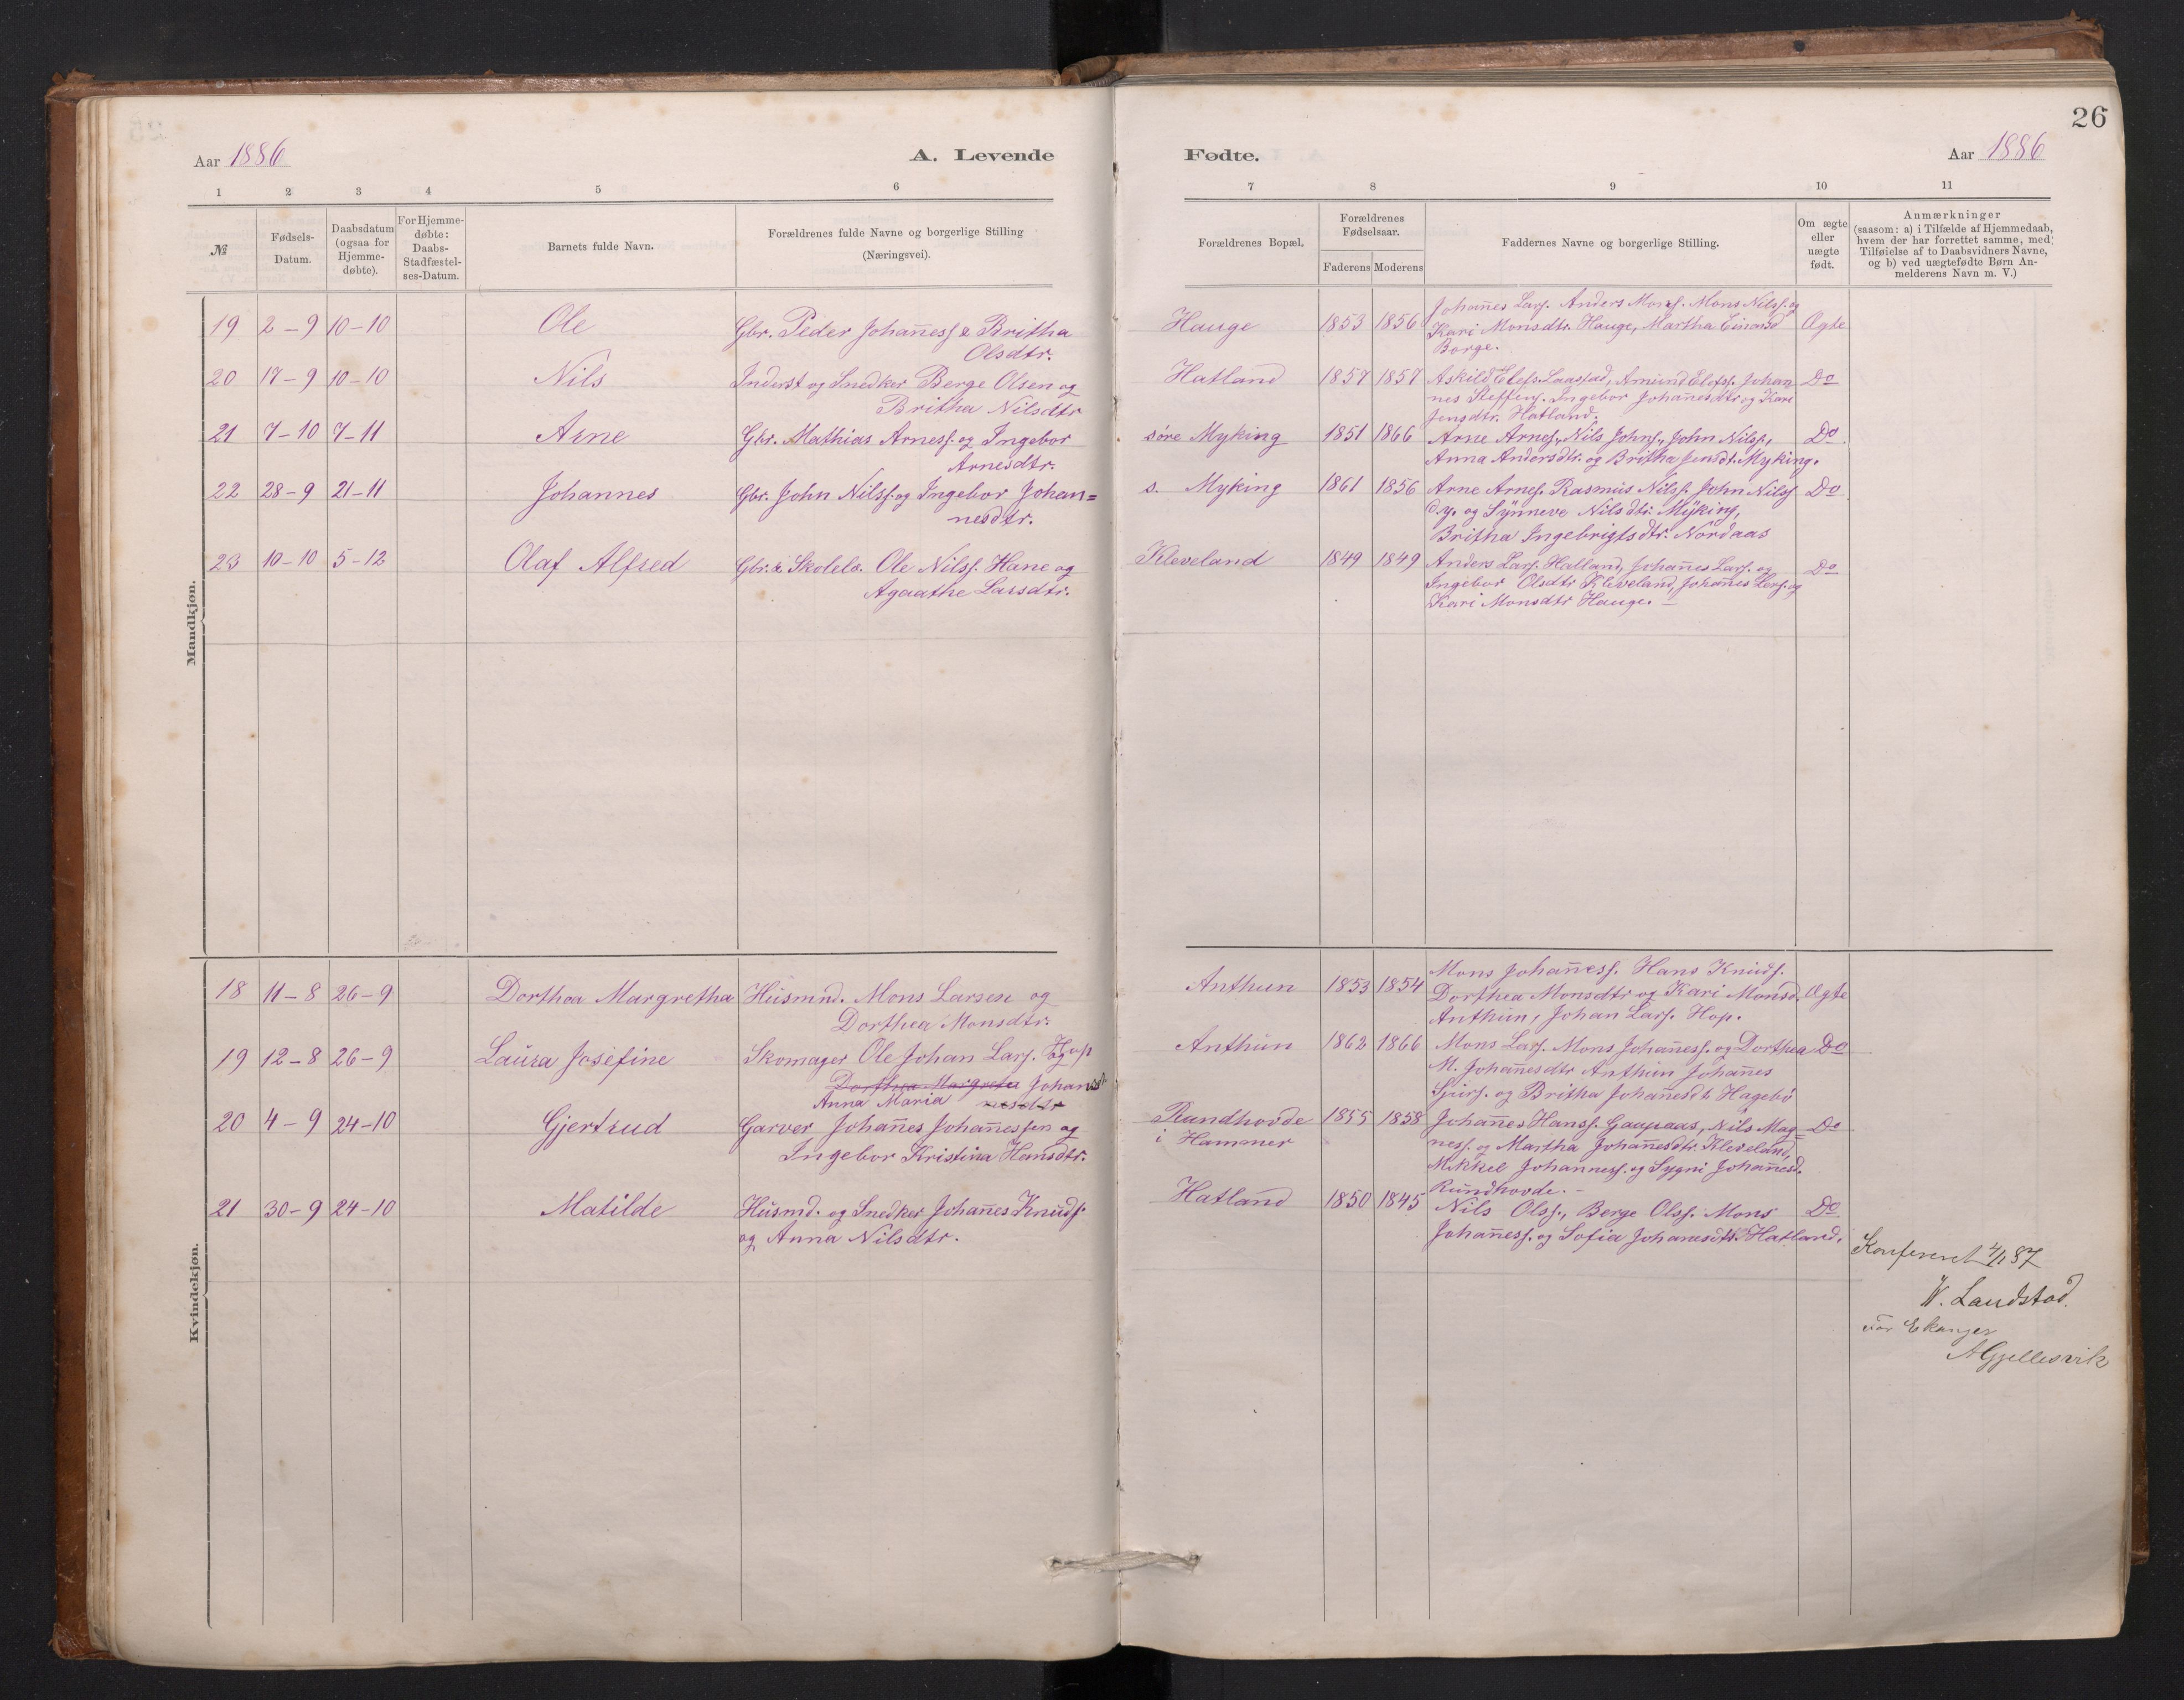 26
Aar 1886
A. Levende
Fødte.
Aar 1886
1 2 3 4 5 6 7 8 9 10 11
№
Fødsels-
Datum.
Daabsdatum
(ogsaa for
Hjemme-
døbte).
For Hjemme-
døbte:
Daabs-
Stadfæstel-
ses-Datum.
Barnets fulde Navn.
Forældrenes fulde Navne og borgerlige Stilling
(Næringsvei).
Forældrenes Bopæl.
Forældrenes
Fødselsaar.
Faderens Moderens
Faddernes Navne og borgerlige Stilling.
Om ægte
eller
uægte
født.
Anmærkninger
(saasom: a) i Tilfælde af Hjemmedaab,
hvem der har forrettet samme, med
Tilføielse af to Daabsvidners Navne,
og b) ved uægtefødte Børn An-
melderens Navn m. V.)
Mandkjøn.
19 2-9 10-10 Ole Gbr. Peder Johan̄ess. & Britha
Olsdtr.
Hauge 1853 1856 Johan̄es Lars. Anders Mons. Mons Nilss. og
Kari Monsdtr. Hauge, Martha Einarsd Ægte
Borge.
20 17-9 10-10 Nils Inderst og Snedker Berge Olsen og
Britha Nilsdtr
Hatland 1857 1857 Askild Elefs. Laastad, Amund Elefs. Johan Do
nes Steffens. Ingebor Johan̄esdtr og Kari
Jensdtr. Hatland.
21 7-10 7-11 Arne Gbr. Mathias Arness. og Ingebor
Arnesdtr.
søre Myking 1851 1866 Arne Arnes., Nils Johns., John Nilss., Do
Anna Andersdtr. og Britha Jensdt. Myking.
22 28-9 21-11 Johannes Gbr. John Nilss. og Ingebor Johan=
nesdtr.
s. Myking 1861 1856 Arne Arnes. Rasmus Nilss. John Nilss Do
d.y. og Synneve Nilsdtr. Myking,
Britha Ingebrigtsdtr. Nordaas
23 10-10 5-12 Olaf Alfred Gbr. & Skolelæ. Ole Nilss. Hane og
Agaathe Larsdtr.
Kleveland 1849 1849 Anders Lars. Halland, Johan̄es Lars. og Do
Ingebor Olsdtr Kleveland, Johan̄es Lars. og
Kari Monsdtr Hauge. –
Kvindekjøn.
18 11-8 26-9 Dorthea Margretha Husmnd. Mons Larsen og
Dorthea Monsdtr.
Anthun 1853 1854 Mons Johan̄ess. Hans Knuds.
Dorthea Monsdtr og Kari Monsd. Ægte
Anthun, Johan Lars. Hop.
19 12-8 26-9 Laura Josefine Skomager Ole Johan Lars. og
Dorthea Margreta Johan
Anna Maria nesdtr
Anthun 1862 1866 Mons Lars. Mons Johan̄ess. og Dorthea Do
M. Johan̄esdtr Anthun Johan̄es
Sjurs. og Britha Johan̄esdt. Hagebø
20 4-9 24-10 Gjertrud Garver Johan̄es Johan̄essen og
Ingebor Kristina Hansdtr.
Rundhovde 1855 1858 Johan̄es Hanss. Gaupaas, Nils Mag= Do
i Hammer
ness. og Martha Johan̄esdtr. Kleveland,
Mikkel Johanness. og Sygni Johan̄esd.
Rundhovde. –
21 30-9 24-10 Matilde Husmd. og Snedker Johan̄es Knuds.
og Anna Nilsdtr.
Hatland 1850 1845 Nils Olss., Berge Olss. Mons Do
Johan̄ess. og Sofia Johan̄esdtr. Hatland.
Konfereret 4/1 87
W. Landstad.
for Ekanger
A Gjellesvik